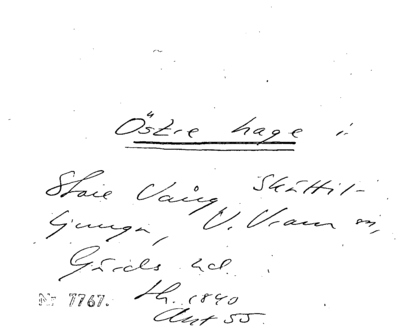 Östre hage i
Store Vång Skättil-
ljunga, V. Vram sn,
Gärds hd.
Nr 7767. th. 1840
Akt 55